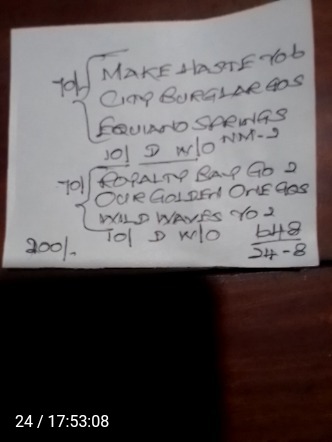 70/ MAKE HASTE 706
CITY BURGLAR 905
EQUIANO SPRINGS
10/ D W/O NM-2
70/ ROYALTY BAY GO 2
OUR GOLDEN ONE 905
WILD WAVES 702
10/ D W/O
200/- 648
24-8
24 / 17:53:08